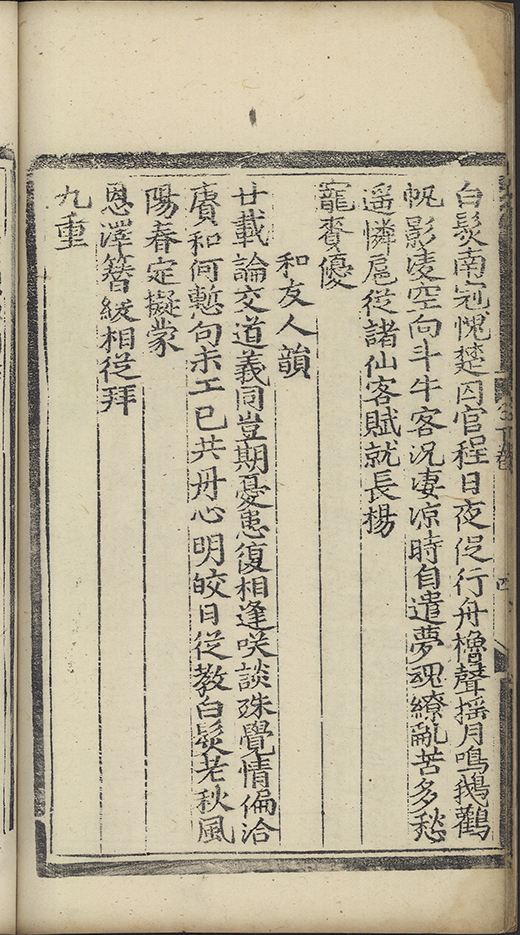 白髮南冠愧楚囚官程日夜促行舟櫓聲搖月鳴鵝鸛
帆影凌空向斗牛客況凄凉時自遣夢魂繚亂苦多愁
遥憐扈從諸仙客賦就長楊
寵賚優
和友人韻
廿載論交道義同豈期憂患復相逢咲談殊覺情偏洽
賡和何慙句未工已共丹心明皎日從教白髮老秋風
陽春定擬蒙
恩澤簪紱相從拜
九重